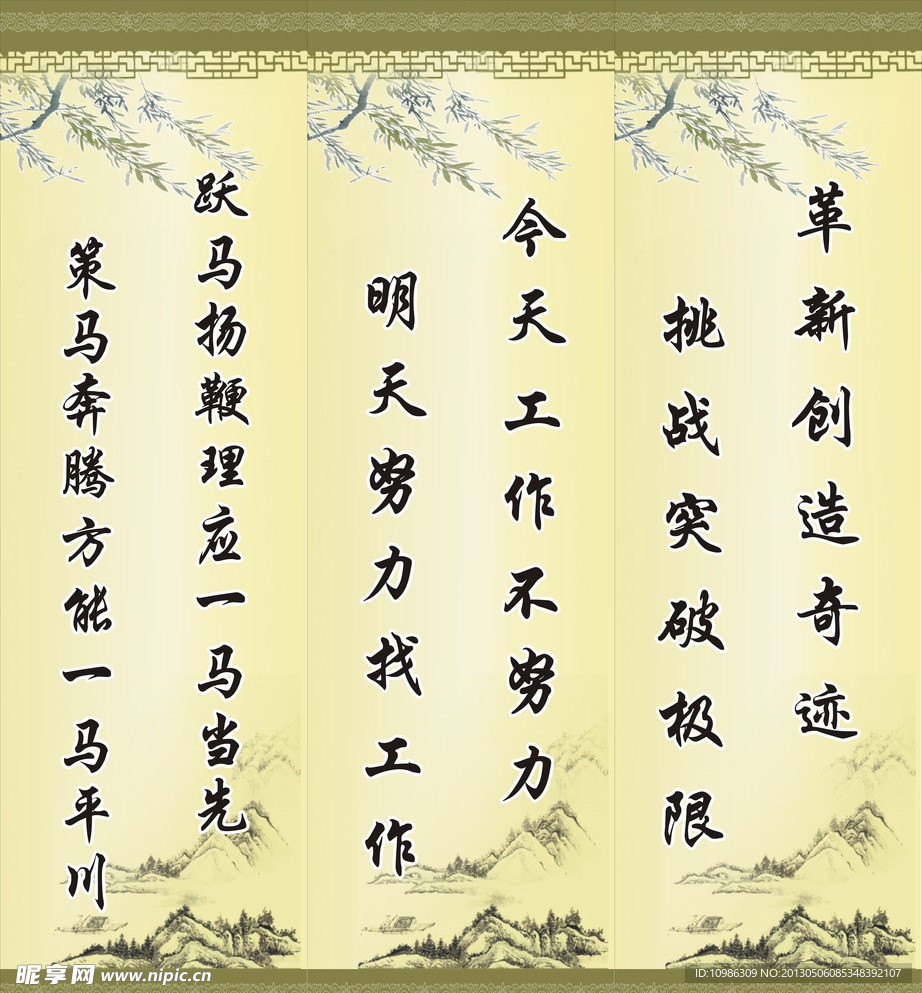 革新创造奇迹
挑战突破极限
今天工作不努力
明天努力找工作
跃马扬鞭理应一马当先
策马奔腾方能一马平川
昵享网 www.nipic.cn
ID:10986309 NO:20130506085348392107